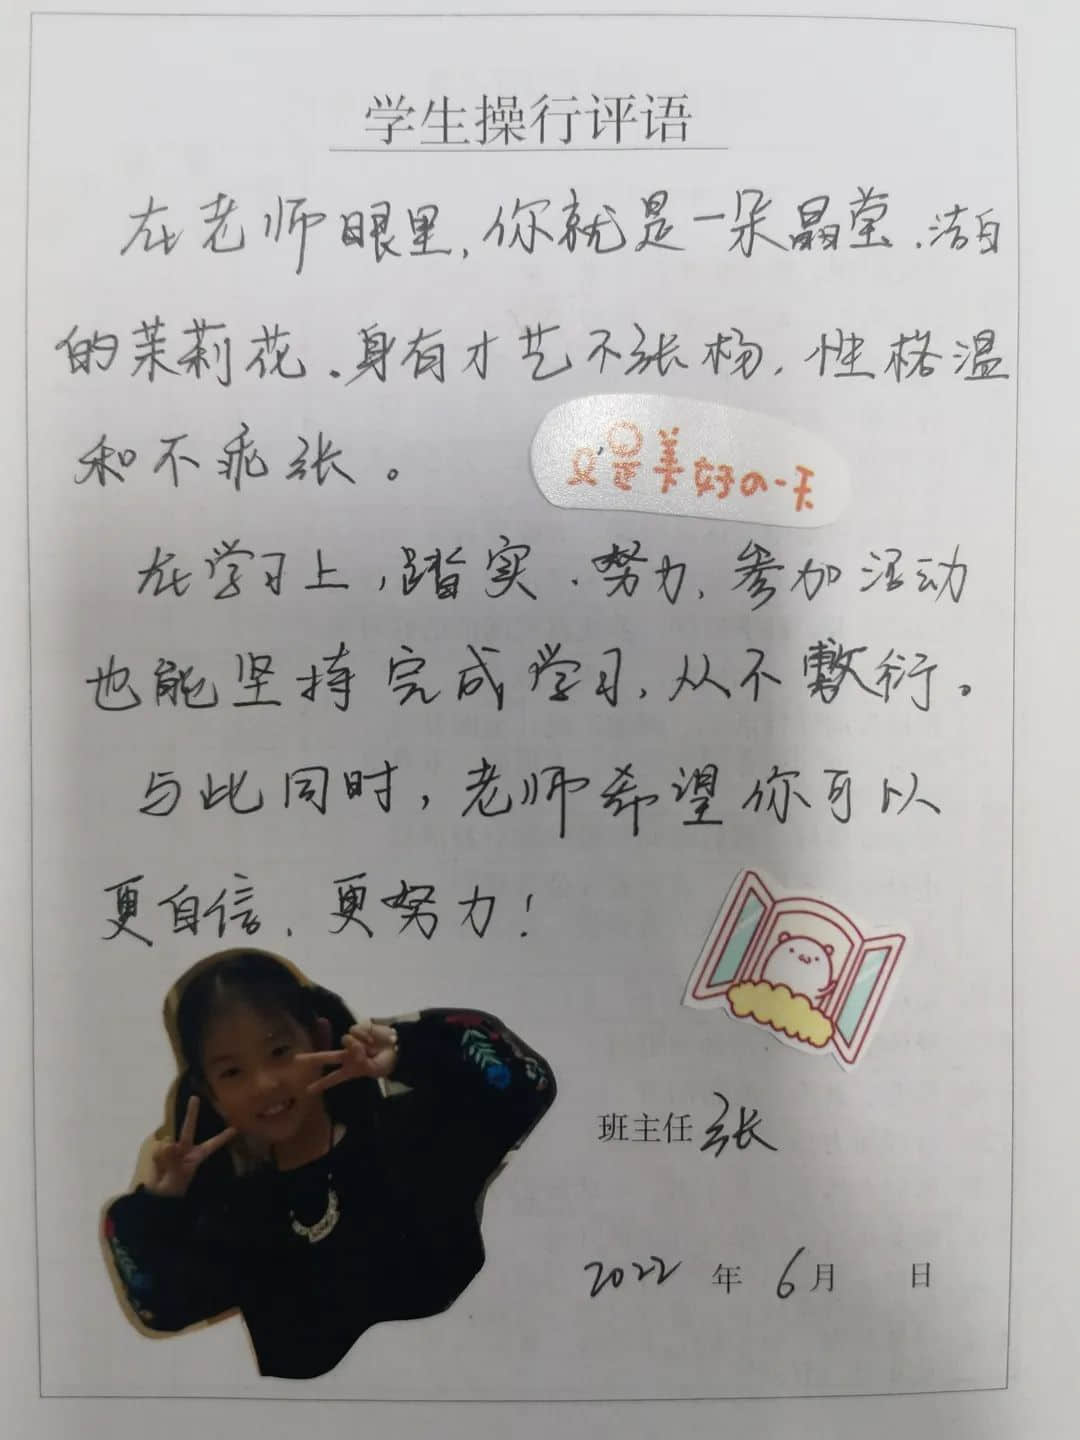 学生操行评语
在老师眼里,你就是一朵晶莹、洁白
的茉莉花。身有才艺不张杨,性格温
和不乖张。
又是美好の一天
在学习上,踏实、努力,参加活动
也能坚持完成学习,从不敷衍。
与此同时,老师希望你可以
更自信、更努力!
班主任 张
2022 年 6月 日